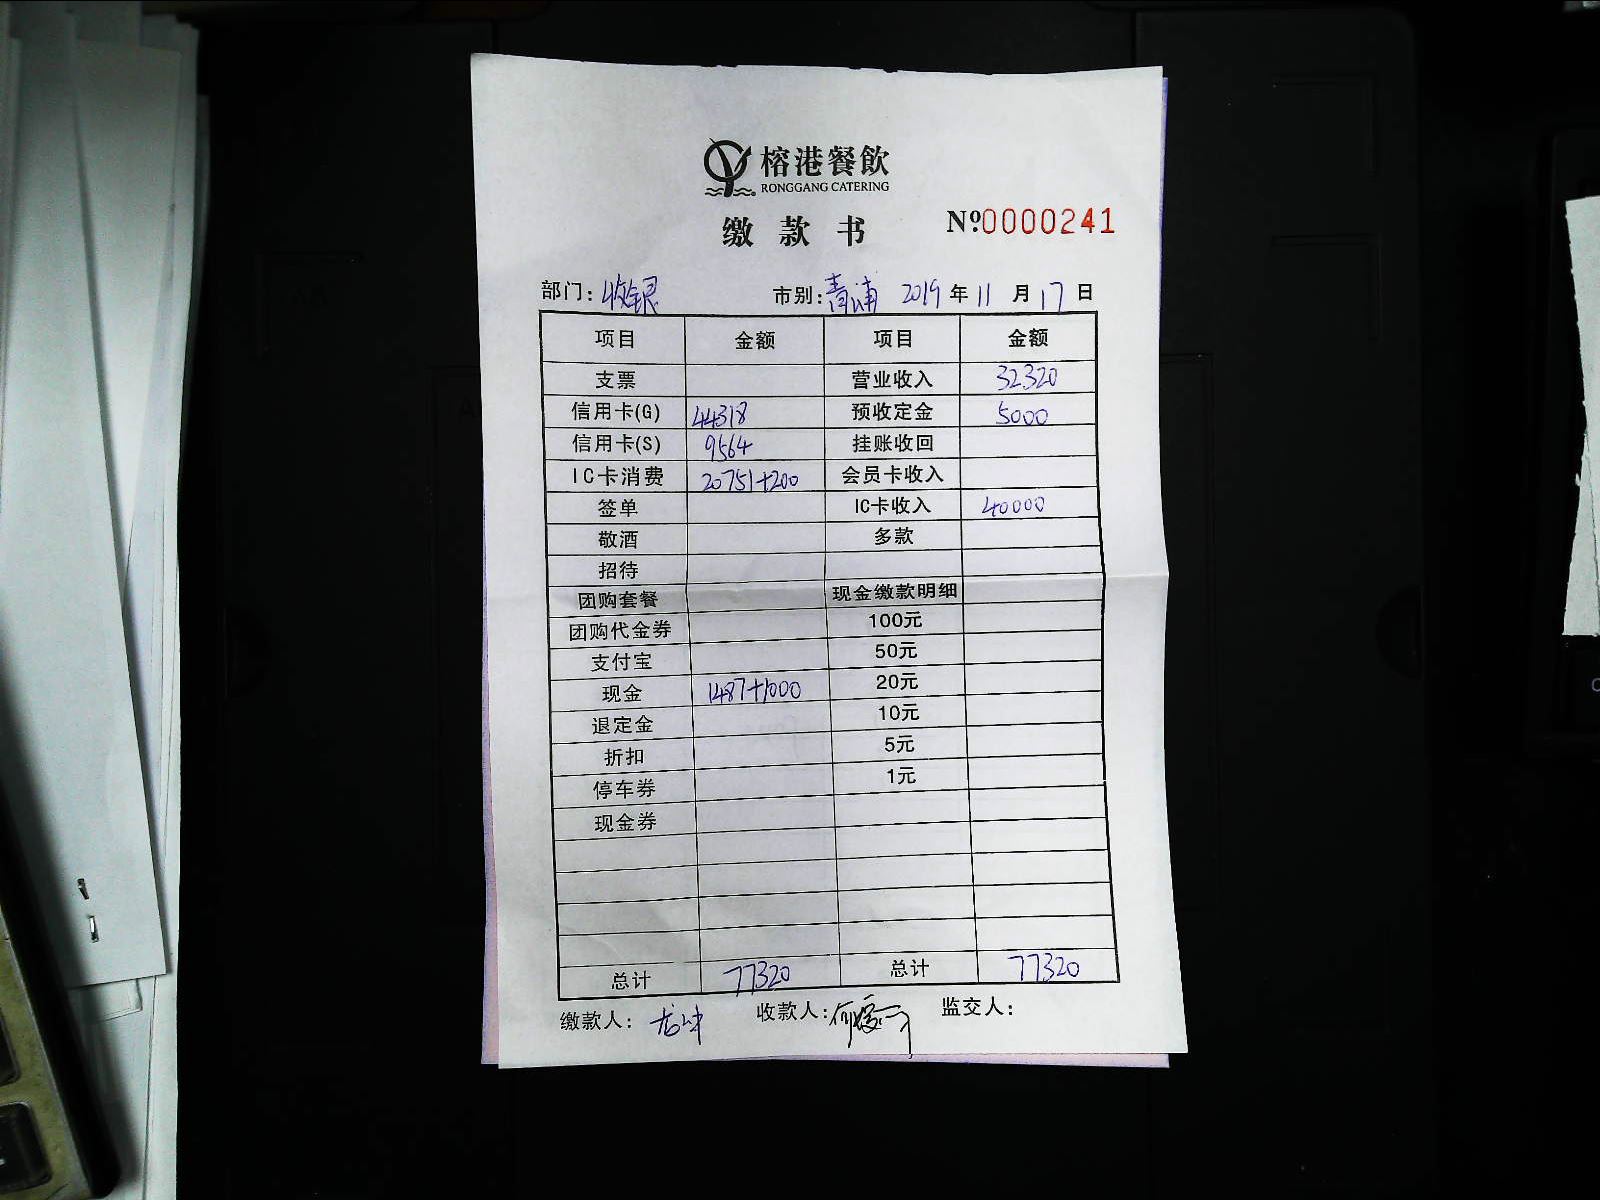 榕港餐飲
RONGGANG CATERING
缴款书 №0000241
部门：收银 市别：青浦 2019年11月17日
项目 金额 项目 金额
支票 营业收入 32320
信用卡(G) 44318 预收定金 5000
信用卡(S) 9564 挂账收回
IC卡消费 20751+200 会员卡收入
签单 IC卡收入 40000
敬酒 多款
招待
团购套餐 现金缴款明细
团购代金券 100元
支付宝 50元
现金 1487+1000 20元
退定金 10元
折扣 5元
停车券 1元
现金券
总计 77320 总计 77320
缴款人： 收款人： 监交人：